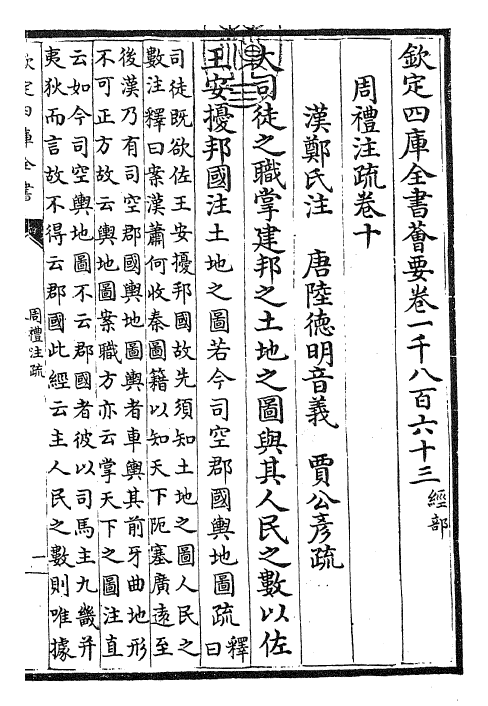 欽定四庫全書薈要卷一千八百六十三 經部
周禮注疏卷十
漢鄭氏注 唐陸德明音義 賈公彥疏
大司徒之職掌建邦之土地之圖與其人民之數以佐
王安擾邦國注土地之圖若今司空郡國輿地圖疏釋曰
司徒既欲佐王安擾邦國故先須知土地之圖人民之
數注釋曰案漢蕭何收秦圖籍以知天下阨塞廣遠至
後漢乃有司空郡國輿地圖輿者車輿其前牙曲地形
不可正方故云輿地圖案職方亦云掌天下之圖注直
云如今司空輿地圖不云郡國者彼以司馬主九畿并
夷狄而言故不得云郡國此經云主人民之數則唯據
欽定四庫全書
周禮注疏
一